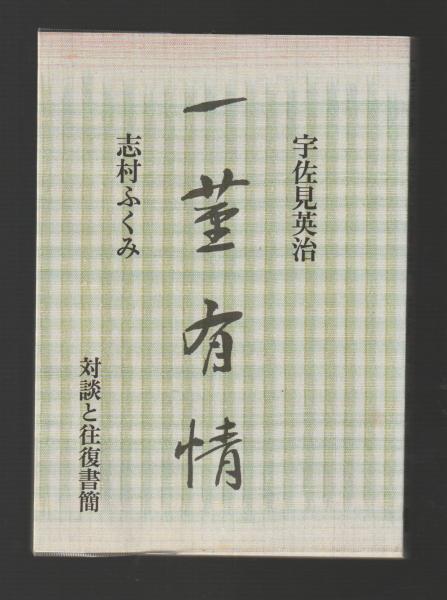 宇佐見英治
一菫有情
志村ふくみ
対談と往復書簡